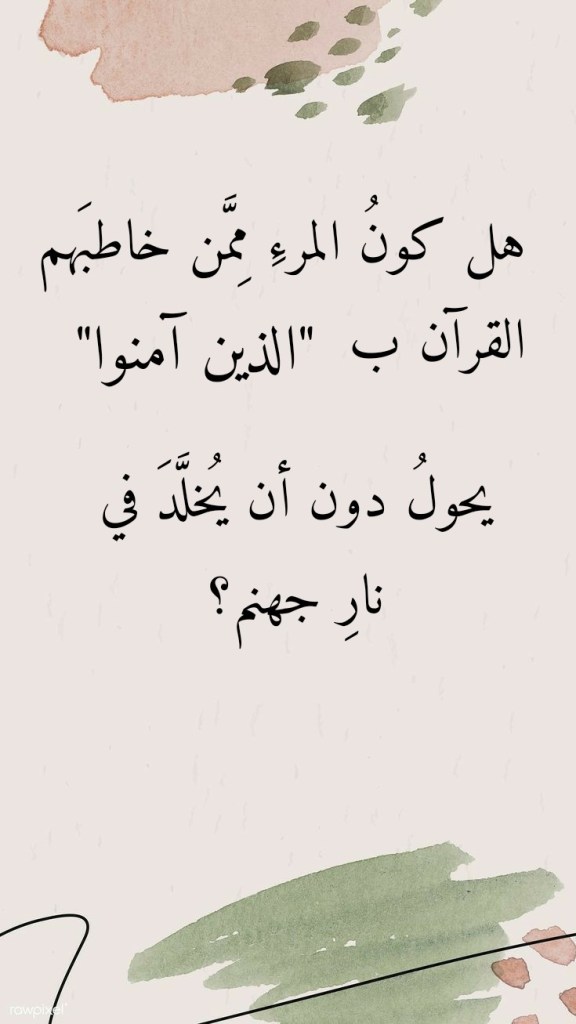 هل كونُ المرءِ مِمَّن خاطبَهم
القرآن ب "الذين آمنوا"
يحولُ دون أن يُخلَّدَ في
نارِ جهنم؟
rawpixel